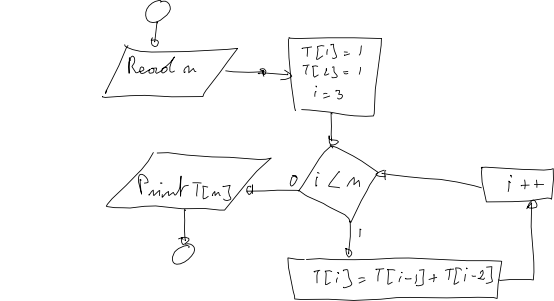 Read n
T[1] = 1
T[2] = 1
i = 3
i < n
0
1
Print T[n]
i ++
T[i] = T[i-1] + T[i-2]